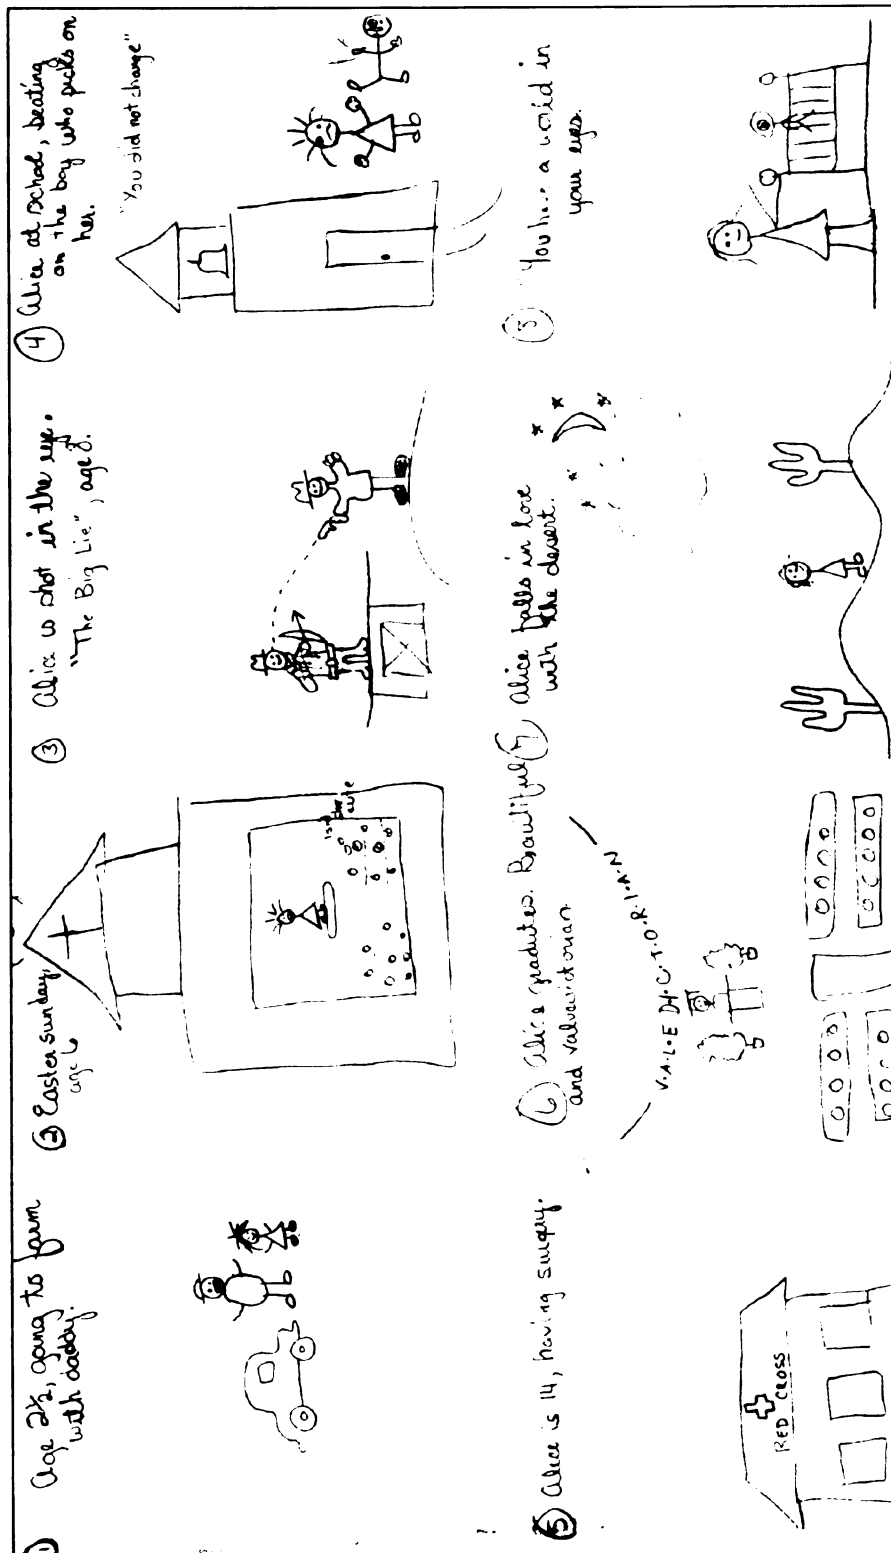 ① Age 2½, going to farm
with daddy.
② Easter sunday,
age 6
isn't she
cute
③ Alice is shot in the eye.
"The Big Lie", age 8.
④ Alice at school, beating
on the boy who picks on
her.
"You did not change"
⑤ Alice is 14, having surgery.
RED CROSS
⑥ Alice gradutes. Beautiful
and valuevictorian
V.A.L.E.D.I.C.T.O.R.I.A.N
⑦ Alice falls in love
with the desert.
⑧ "You have a world in
your eyes.